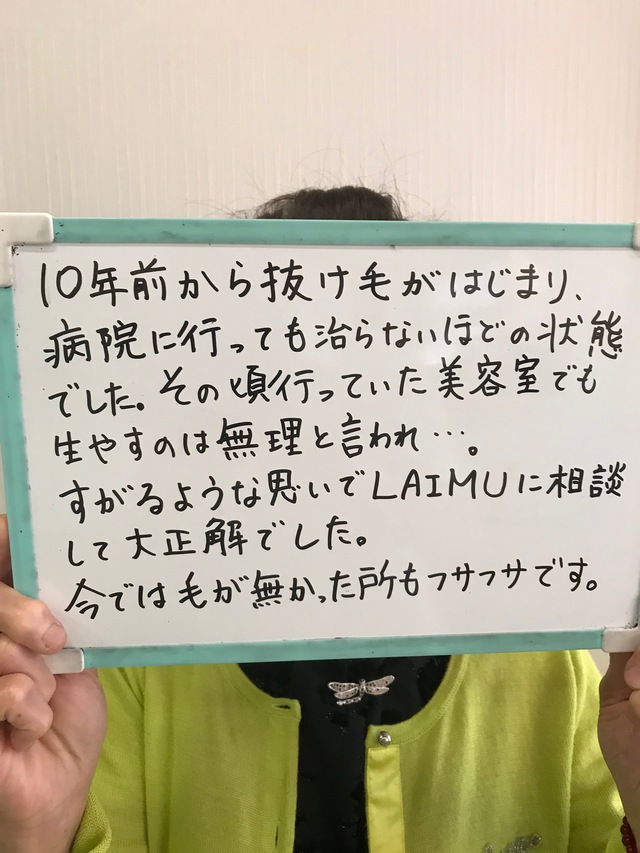 10年前から抜け毛がはじまり、
病院に行っても治らないほどの状態
でした。その頃行っていた美容室でも
生やすのは無理と言われ…。
すがるような思いでLAIMUに相談
して大正解でした。
今では毛が無かった所もフサフサです。